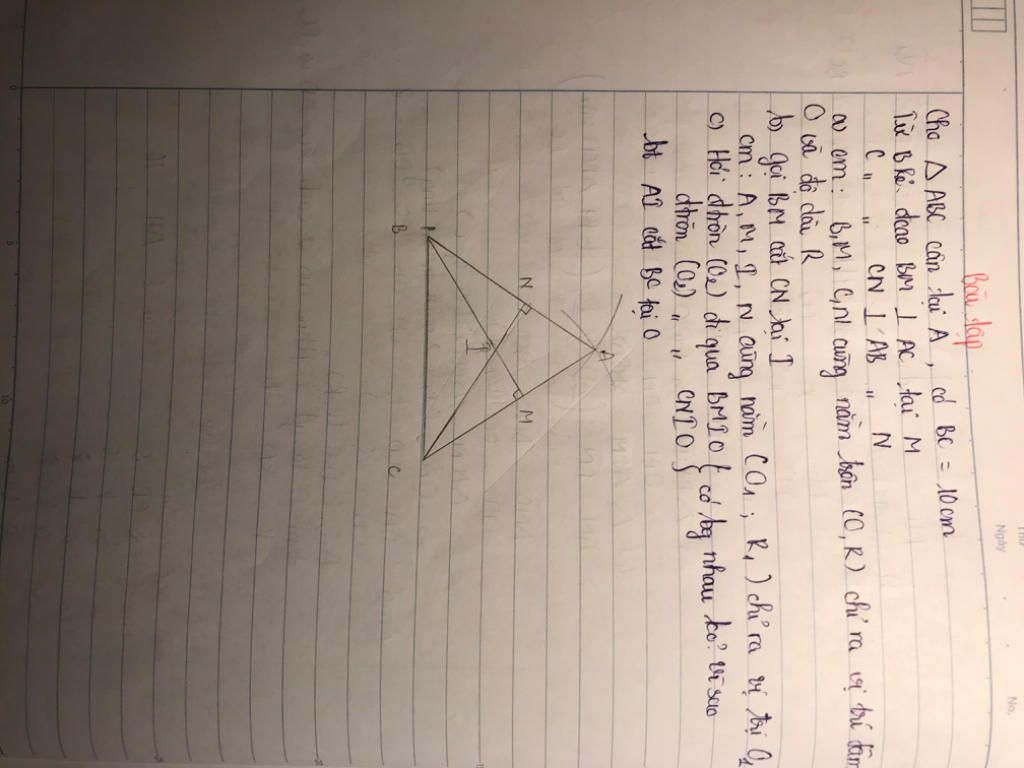 Thứ
Ngày
No.
Bài tập
Cho △ ABC cân tại A, có BC = 10cm
Từ B kẻ đcao BM ⊥ AC tại M
C " " CN ⊥ AB " N
a) cm: B, M, C, N cùng nằm trên (O, R) chỉ ra vị trí tâm
O và độ dài R
b) gọi BM cắt CN tại I
cm: A, M, I, N cùng nằm (O₁; R₁) chỉ ra vị trí O₂
c) Hỏi đtròn (O₂) đi qua BMIO } có bg nhau ko? vì sao
đtròn (O₃) " " CNIO }
bt AI cắt BC tại O
A
N
M
I
B
C
0
5
10